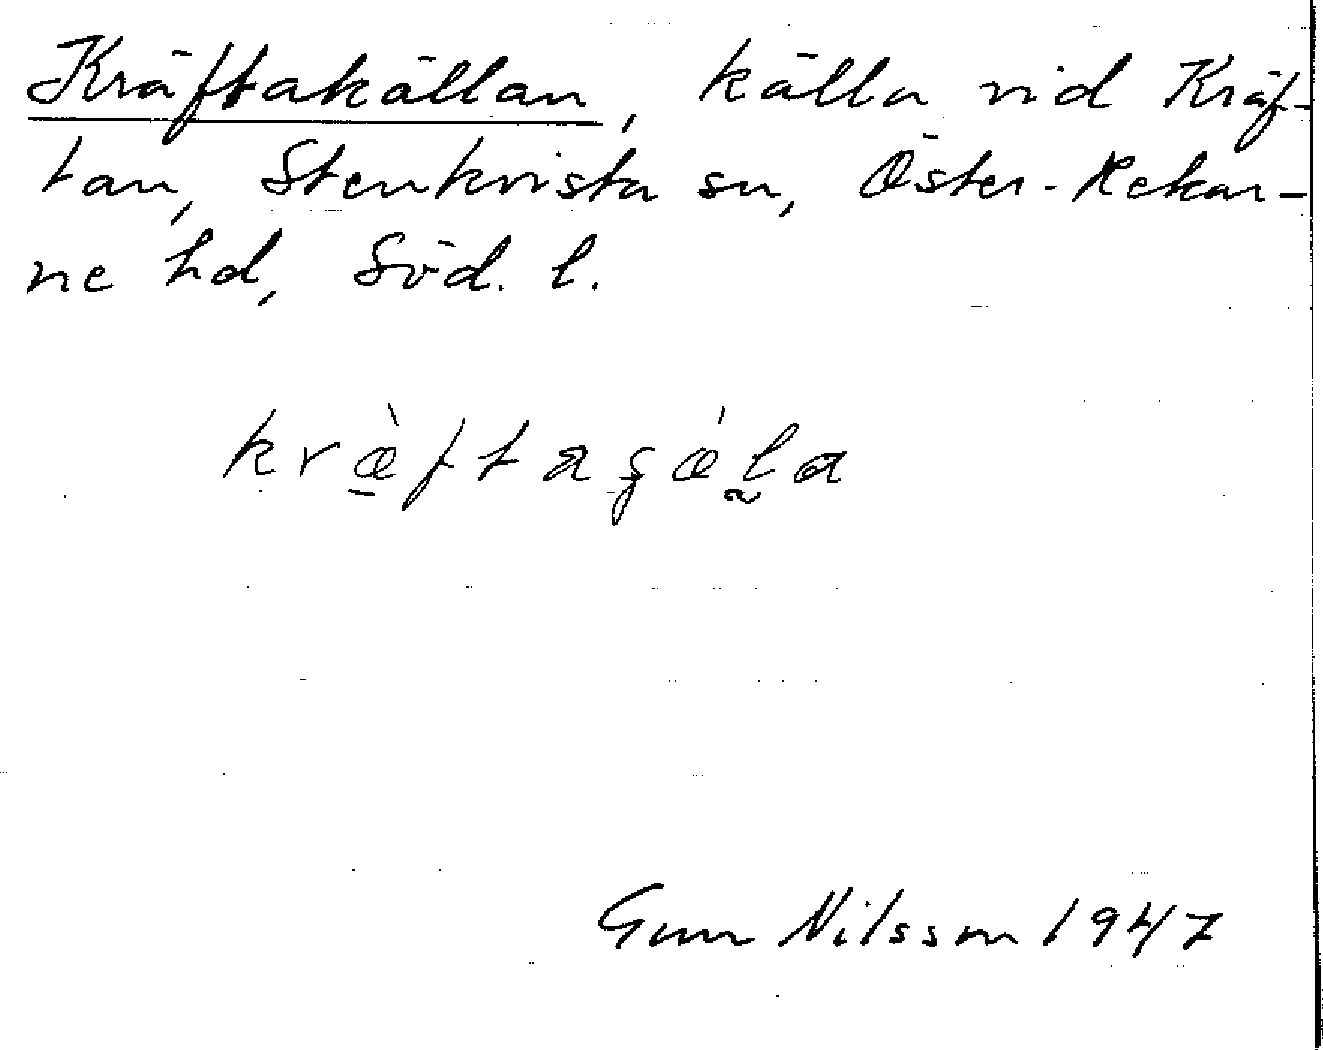 Kräftakällan, källa vid Kräf-
tan, Stenkvista sn, Öster-Rekar-
ne hd, Söd. l.
Gun Nilsson 1947